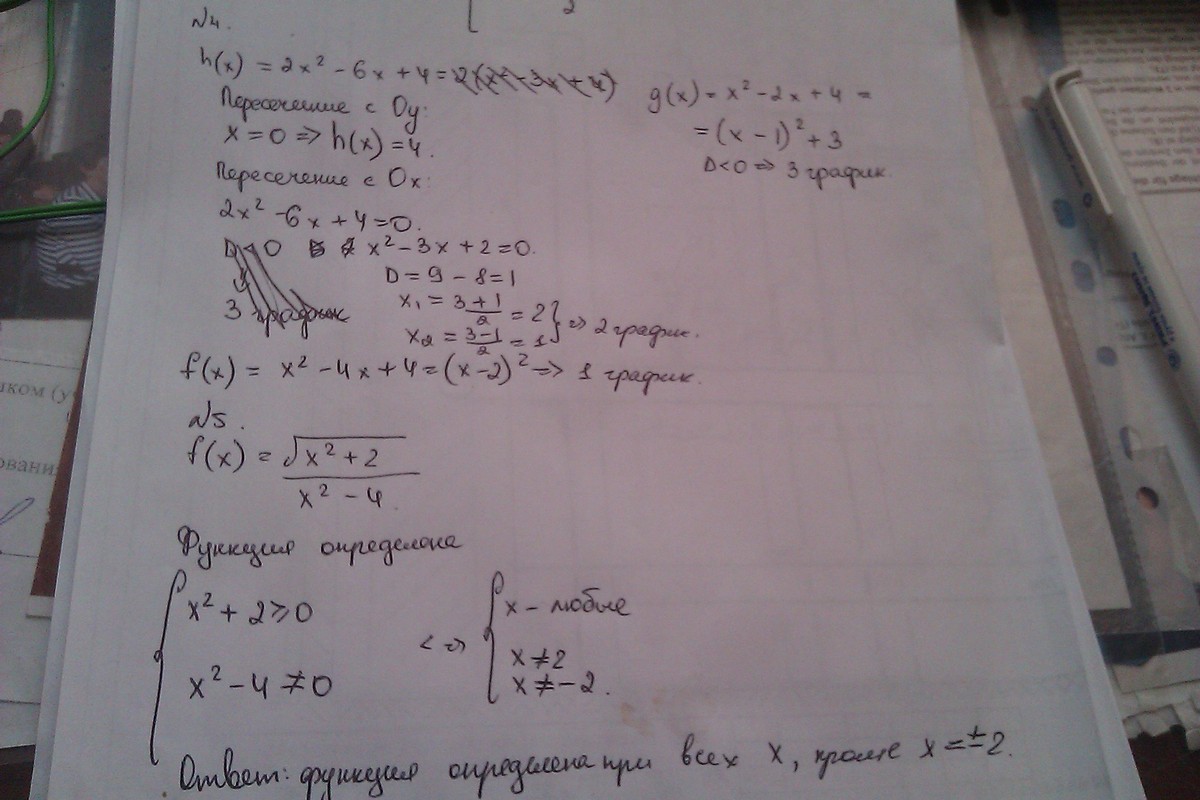 2
№4.
h(x) = 2x² - 6x + 4 =
Пересечение с Oy:
x = 0 => h(x) = 4.
Пересечение с Ox:
2x² - 6x + 4 = 0.
D < 0 x² - 3x + 2 = 0.
D = 9 - 8 = 1
3 график
x₁ = (3+1)/2 = 2
x₂ = (3-1)/2 = 1 } => 2 график.
g(x) = x² - 2x + 4 =
= (x - 1)² + 3
D < 0 => 3 график.
f(x) = x² - 4x + 4 = (x-2)² => 1 график.
№5.
f(x) = √(x² + 2)
x² - 4
Функция определена
{ x² + 2 ⩾ 0
x² - 4 ≠ 0
<=>
{ x - любые
x ≠ 2
x ≠ -2.
Ответ: функция определена при всех x, кроме x = ±2.
ком (у
овани